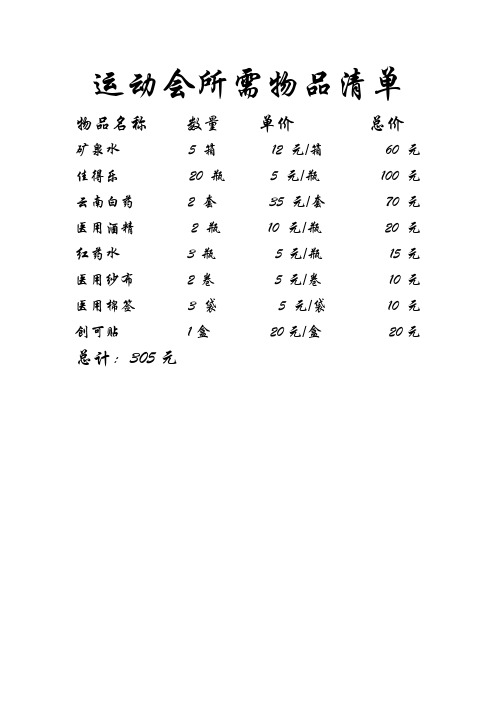 运动会所需物品清单
物品名称 数量 单价 总价
矿泉水 5 箱 12 元/箱 60 元
佳得乐 20 瓶 5 元/瓶 100 元
云南白药 2 套 35 元/套 70 元
医用酒精 2 瓶 10 元/瓶 20 元
红药水 3 瓶 5 元/瓶 15 元
医用纱布 2 卷 5 元/卷 10 元
医用棉签 3 袋 5 元/袋 10 元
创可贴 1 盒 20 元/盒 20 元
总计：305 元